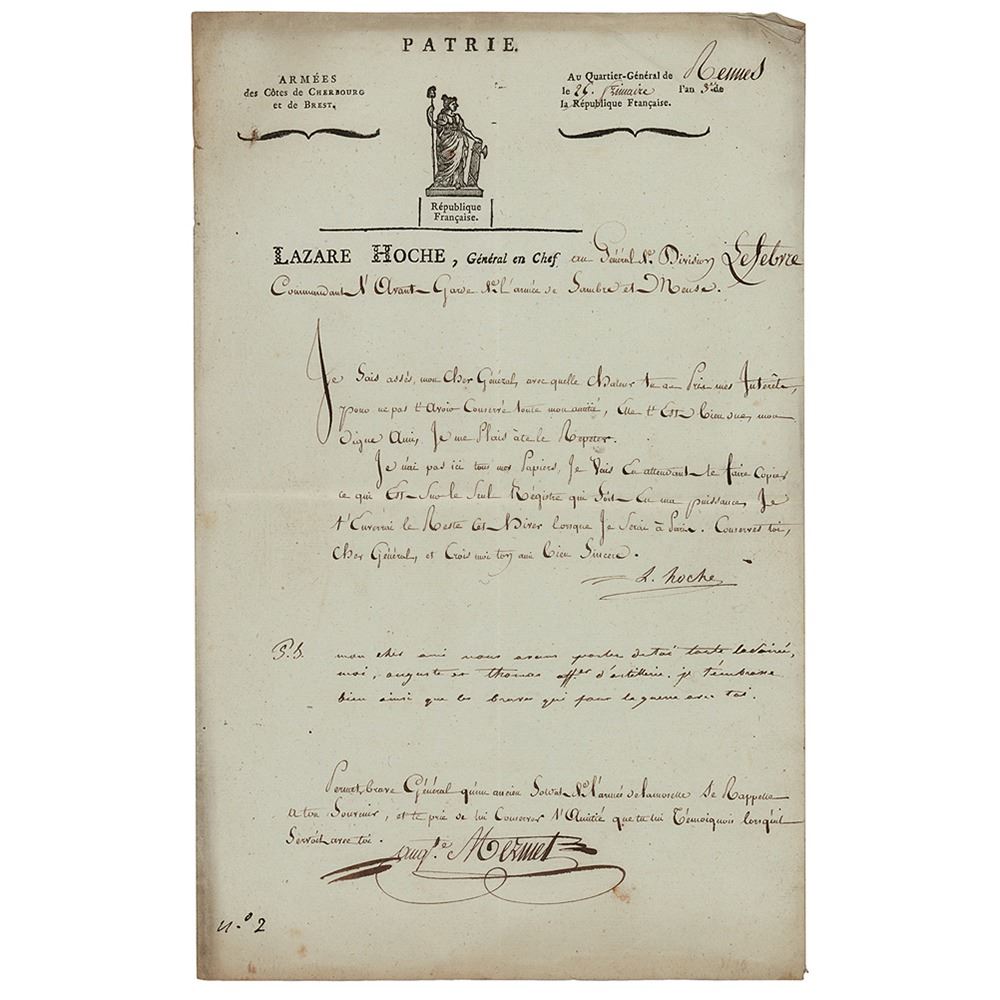 PATRIE.
ARMÉES
des Côtes de CHERBOURG
et de BREST.
Au Quartier-Général de Rennes
le 26. frimaire l'an 3.e de
la République Française.
République
Française.
LAZARE HOCHE, Général en Chef au Général de Division Lefebvre
Commandant l'Avant-Garde de l'armée de Sambre et Meuse.
Je Sais assés, mon Cher Général, avec quelle Chaleur tu as Pris mes Interêts,
pour ne pas t'avoir Conservé toute mon amitié, Elle t'Est bien due, mon
digne Ami, Je me Plais à te le Repeter.
Je n'ai pas ici tous mes Papiers, Je Vais En attendant te faire Copier
ce qui Est Sur le Seul Régistre qui Soit En ma puissance, Je
t'Enverrai le Reste cet Hiver lorsque Je Serai à Paris. Conserves toi,
Cher Général, et Crois moi ton ami bien Sincere.
L. Hoche
P.S. mon cher ami nous avons parler de toi toute la soirée,
moi, auguste et thomas off.er d'artillerie. je t'embrasse
bien ainsi que les braves qui font la guerre avec toi.
Permet, brave Général qu'un ancien Soldat de l'armée de la moselle Se Rappelle
a ton Souvenir, et te prie de lui Conserver l'Amitié que tu lui Témoignois lorsqu'il
Servoit avec toi.
aug.te Mermet
n.º 2